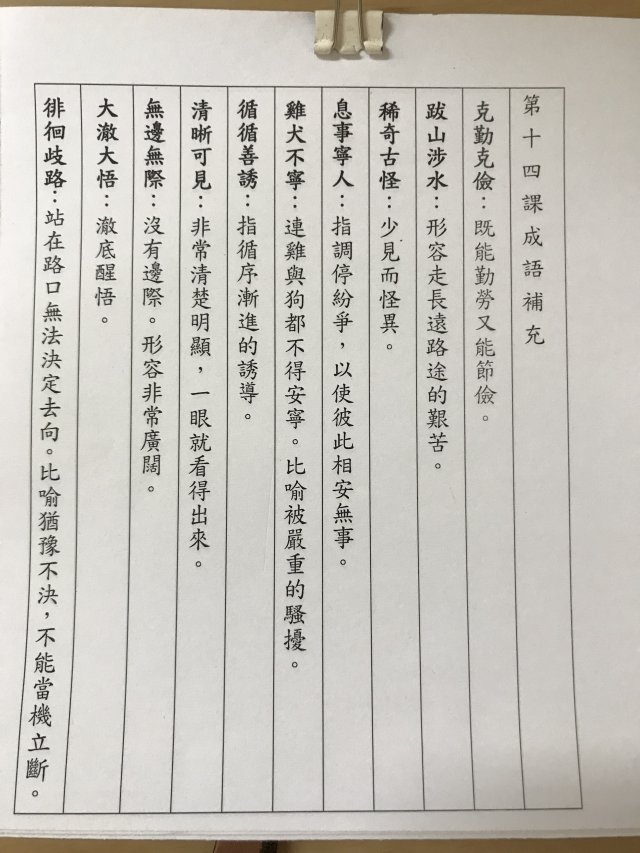 第十四課成語補充
克勤克儉：既能勤勞又能節儉。
跋山涉水：形容走長遠路途的艱苦。
稀奇古怪：少見而怪異。
息事寧人：指調停紛爭，以使彼此相安無事。
雞犬不寧：連雞與狗都不得安寧。比喻被嚴重的騷擾。
循循善誘：指循序漸進的誘導。
清晰可見：非常清楚明顯，一眼就看得出來。
無邊無際：沒有邊際。形容非常廣闊。
大澈大悟：澈底醒悟。
徘徊歧路：站在路口無法決定去向。比喻猶豫不決，不能當機立斷。